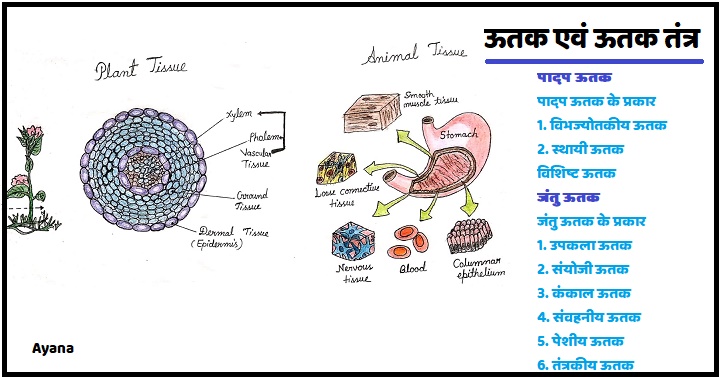 Plant Tissue
Xylem
Pholem
Vascular
Tissue
Ground
Tissue
Dermal Tissue
(Epidermis)
Animal Tissue
Smooth
muscle tissue
Stomach
Loose connective
tissue
Nervous
tissue
Blood
Columnar
epithelium
Ayana
ऊतक एवं ऊतक तंत्र
पादप ऊतक
पादप ऊतक के प्रकार
1. विभज्योतकीय ऊतक
2. स्थायी ऊतक
विशिष्ट ऊतक
जंतु ऊतक
जंतु ऊतक के प्रकार
1. उपकला ऊतक
2. संयोजी ऊतक
3. कंकाल ऊतक
4. संवहनीय ऊतक
5. पेशीय ऊतक
6. तंत्रकीय ऊतक